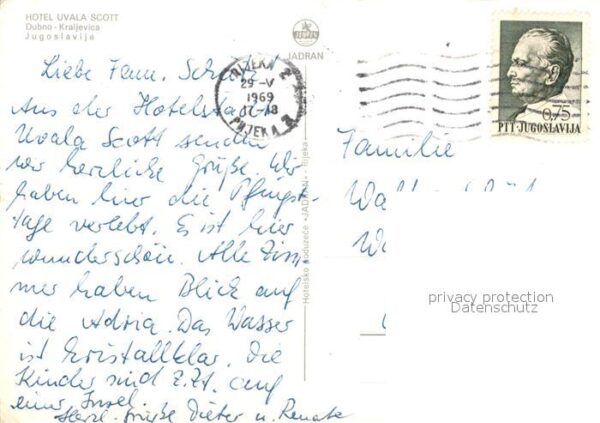 HOTEL UVALA SCOTT
Dubno - Kraljevica
Jugoslavija
JADRAN
RIJEKA 2
29-V
1969
17-18
RIJEKA 2
0,75
PTT JUGOSLAVIJA
Liebe Fam.
Aus der
Uvala Scott senden
wir herzliche Grüße. Wir
haben hier die Pfingst-
tage verlebt. Es ist hier
wunderschön. Alle Zim
mer haben Blick auf
die Adria. Das Wasser
ist kristallklar. Die
Kinder sind z. Zt. auf
einer Insel.
Herzl. Grüße Dieter u. Renate
Hotelsko poduzeće »JADRAN« - Rijeka
Familie
privacy protection
Datenschutz